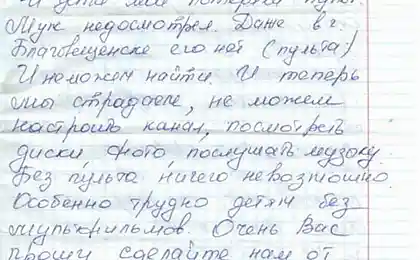 Муж недосмотрел. Даже в г.
Благовещенске его нет (пульта)
И неможем найти. И теперь
мы страдаем, не можем
настроить канал, посмотреть
диски, фото, послушать музыку.
Без пульта ничего невозможно.
Особенно трудно детям без
мультфильмов. Очень Вас
прошу сделайте нам от